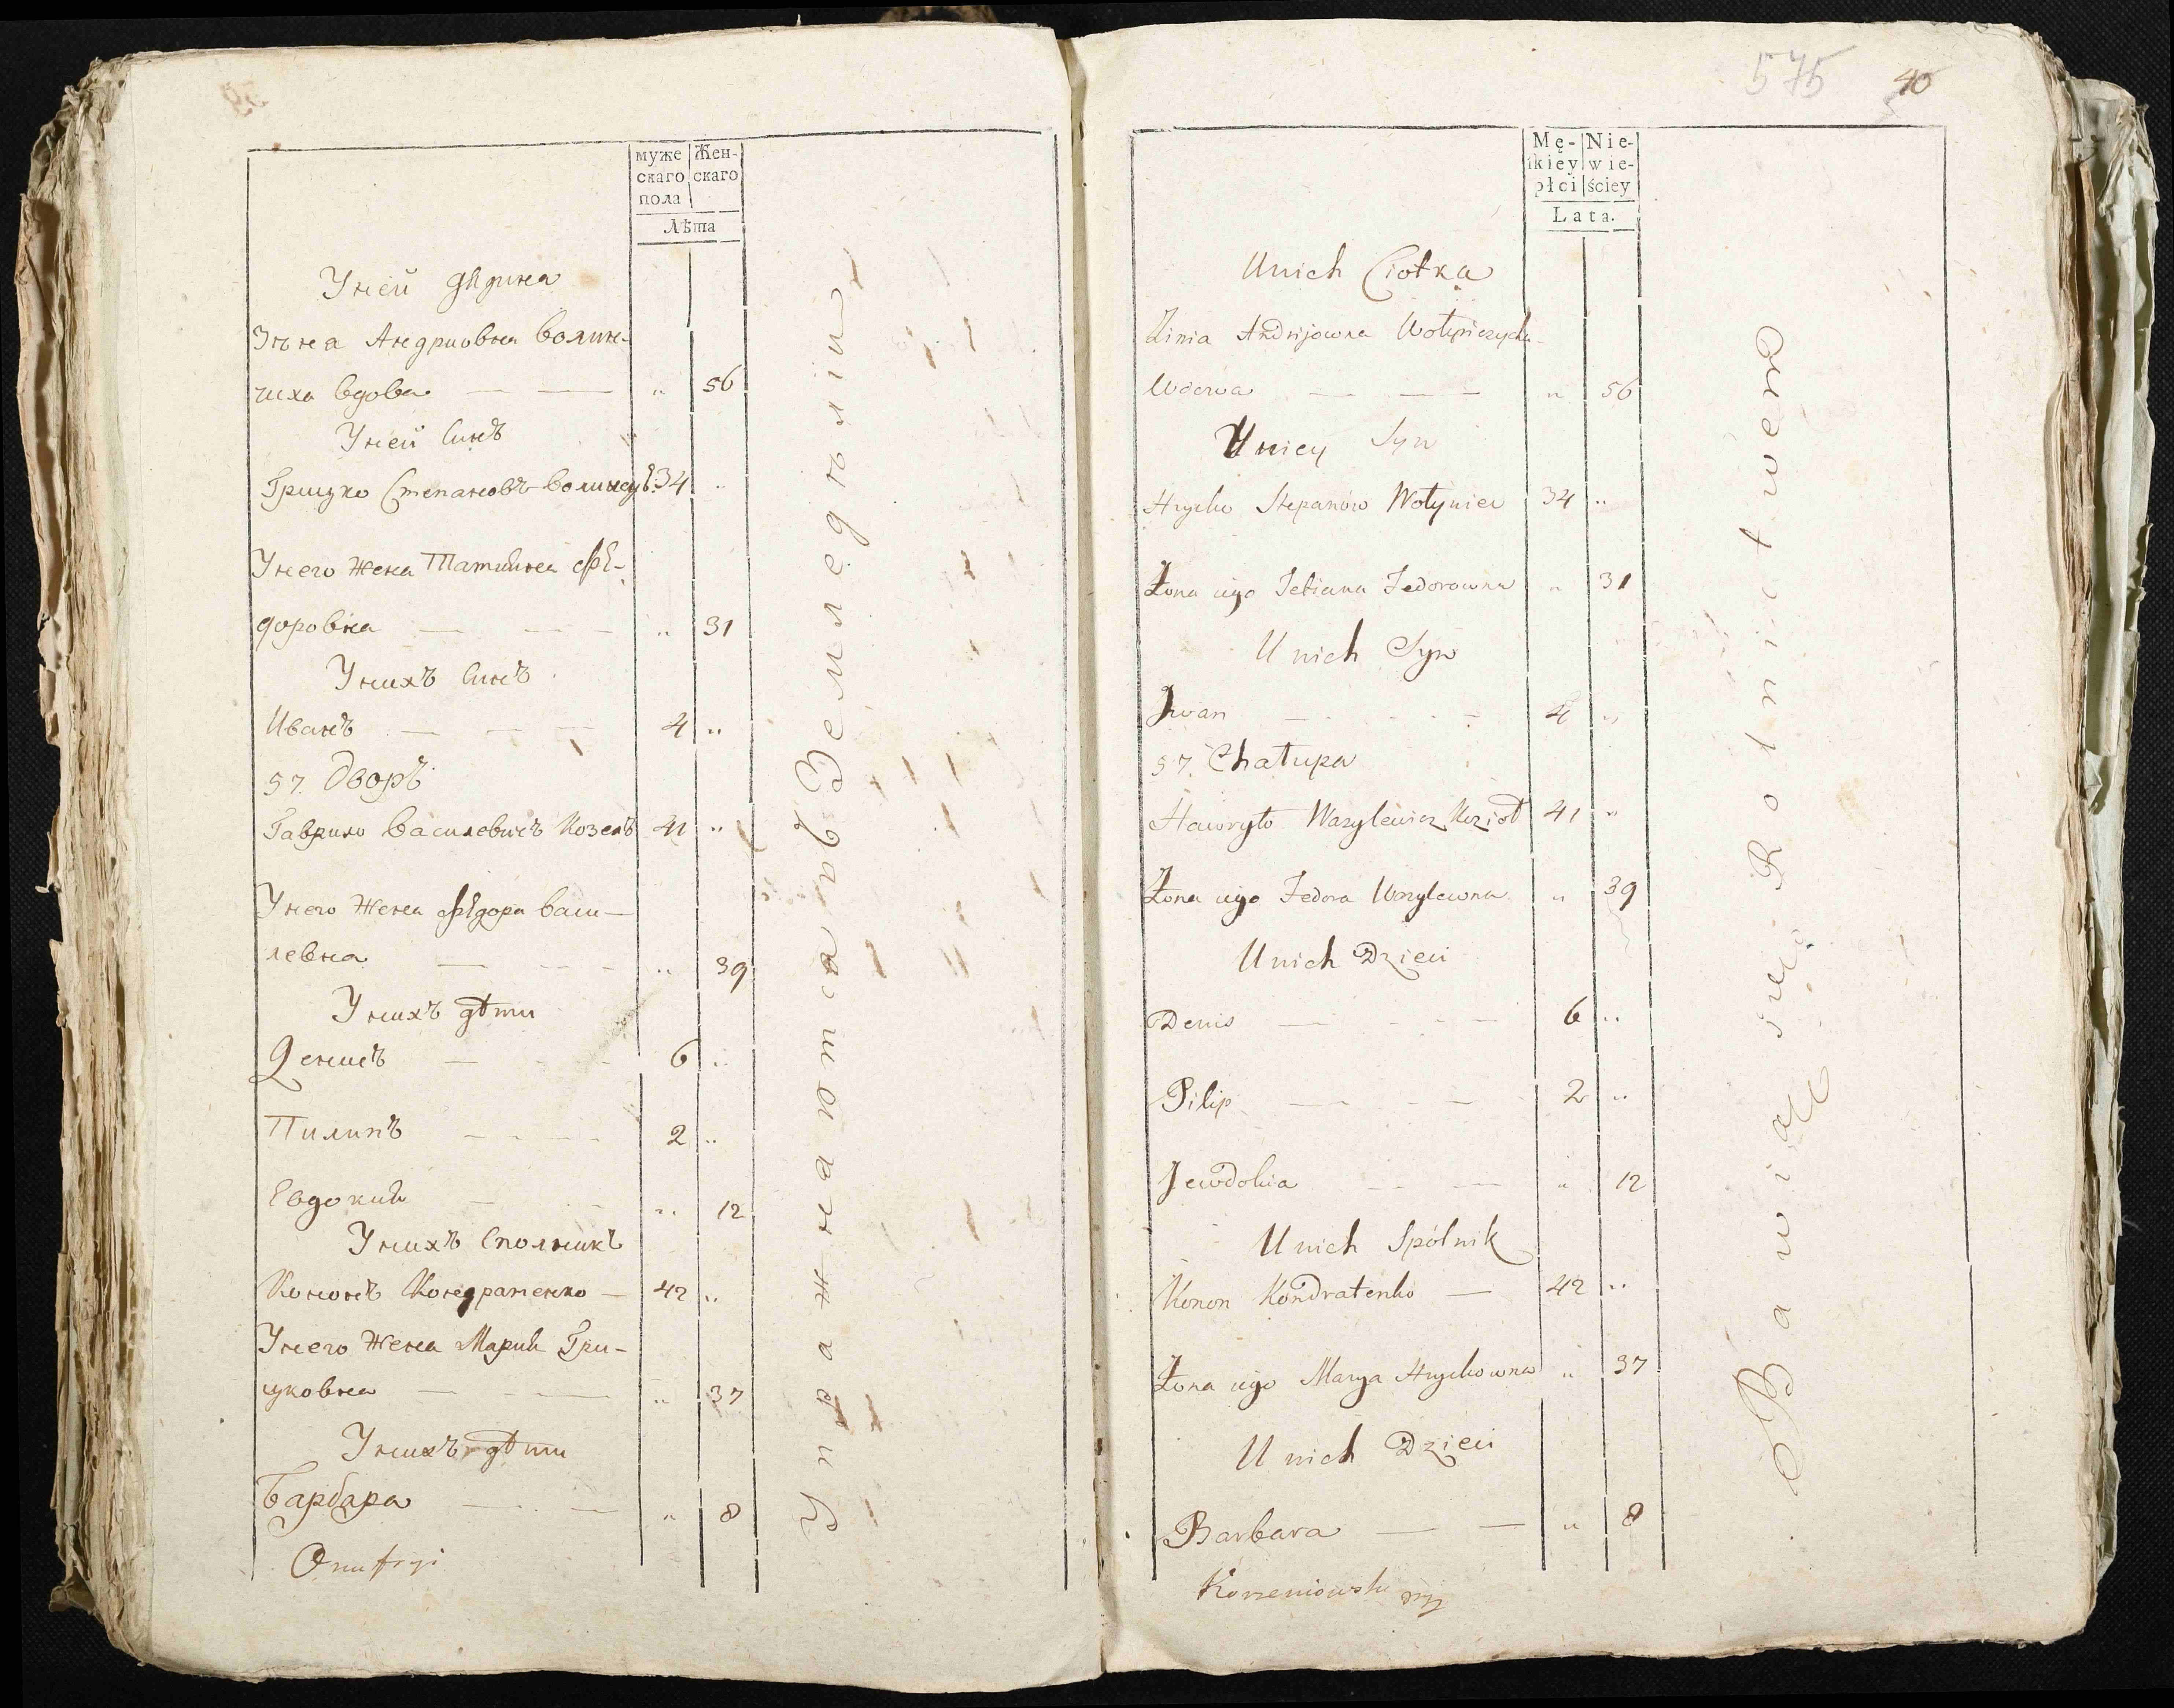 муже
скаго
пола
Жен-
скаго
Лѣта
Уней дядина
Зѣнѣа Андриовна Волин-
чиха вдова — — „ 56
Уней Синъ
Грицко Степановъ Волинецъ 34 „
Унего жена Татияна Фе-
доровна — — „ 31
Унихъ Синъ
Иванъ — — 4 „
57. дворъ
Гаврило Василевичъ Козелъ 41 „
Унего жена Федора Васи-
левна — — „ 39
Унихъ дѣти
Денисъ — — 6 „
Пилипъ — — 2 „
Евдокия — — „ 12
Унихъ Сполникъ
Кононъ Кондратенко — 42 „
Унего жена Мария Гри-
цковна — — „ 37
Унихъ дѣти
Барбара — — „ 8
Onufryi
Упражнаютса въ Земледѣліи
575 40
Mę-
ſkiey
płci
Nie-
wie-
ściey
Lata.
Unich Ciotka
Zinia Andrijowna Wołyniczycha
Wdowa — — „ 56
Uniey Syn
Hrycko Stepanow Wołyniec 34 „
Żona iego Tetiana Fedorowna „ 31
Unich Syn
Iwan — — 4 „
57. Chałupa
Hawryło Wasylewicz Kozioł 41 „
Żona iego Fedora Wasylewna „ 39
Unich Dzieci
Denis — — 6 „
Pilip — — 2 „
Jewdokia — — „ 12
Unich Spólnik
Konon Kondratenko — 42 „
Żona iego Marya Hryckowna „ 37
Unich Dzieci
Barbara — — „ 8
Korzeniowski
Bawią się Rolnictwem